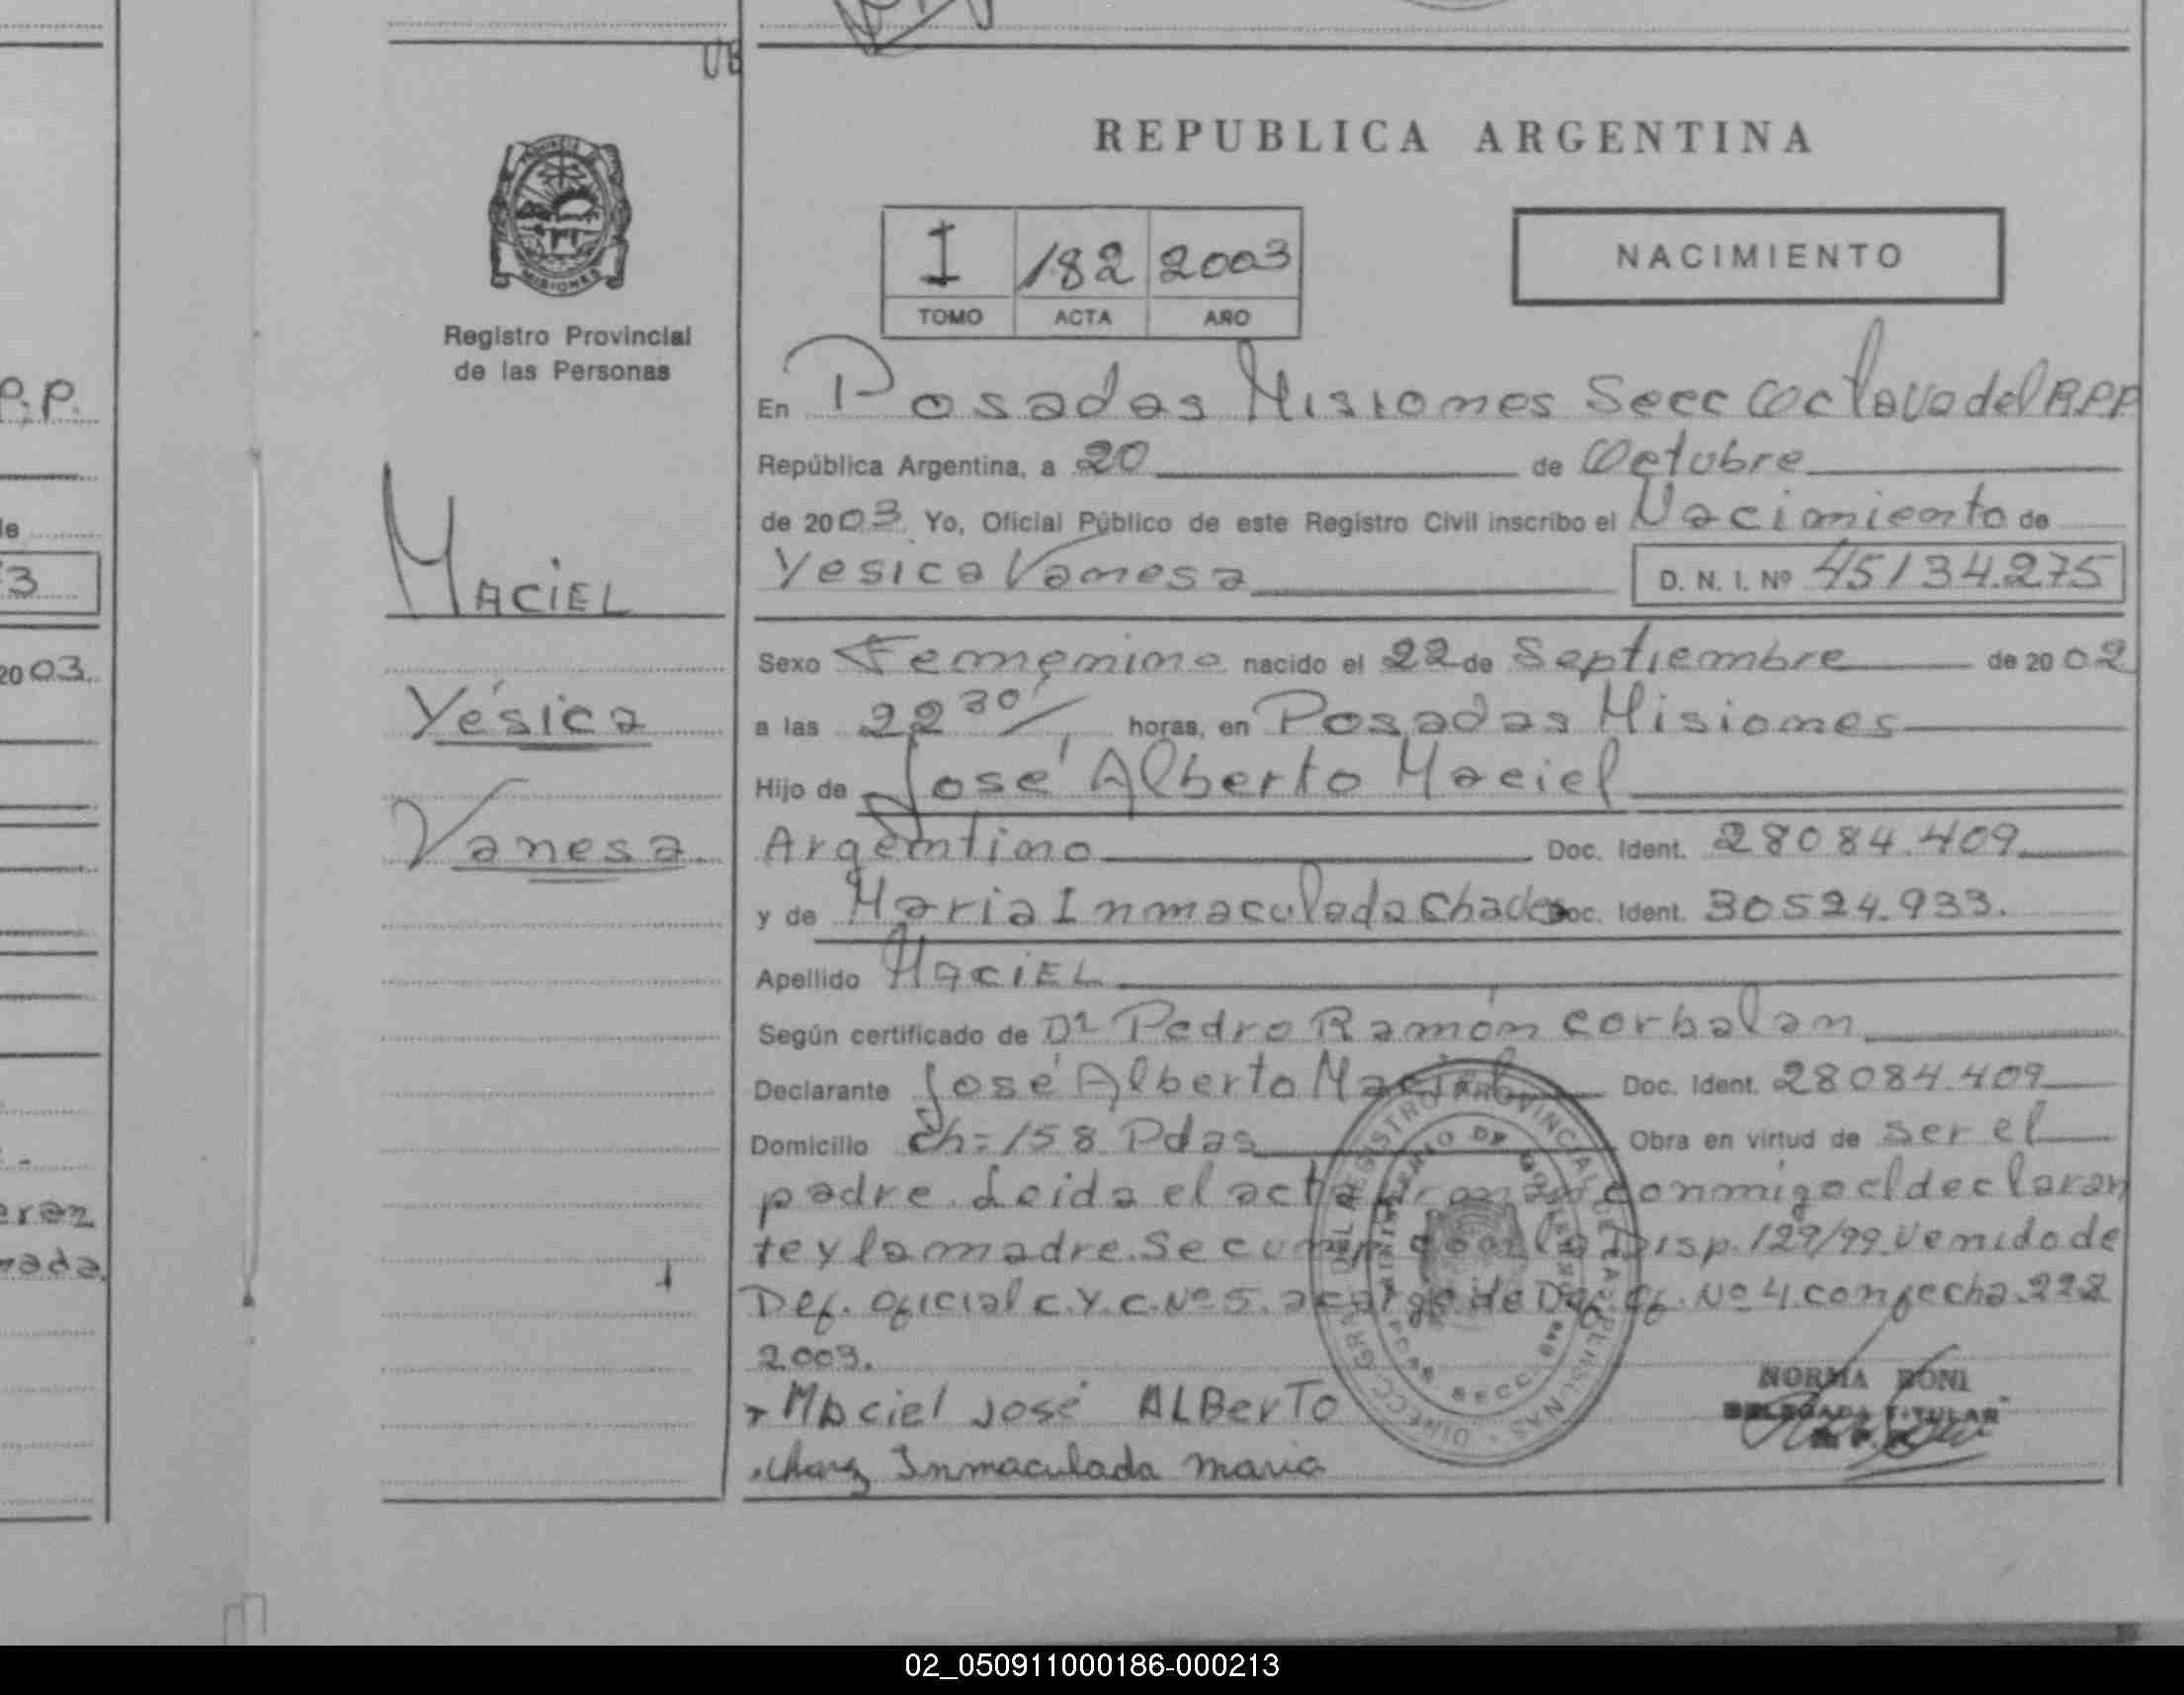 REPUBLICA ARGENTINA
I 182 2003
TOMO ACTA AÑO
NACIMIENTO
PROVINCIA DE
MISIONES
Registro Provincial
de las Personas
MACIEL
Yésica
Vanesa.
En Posadas Misiones Secc Octava del R.P.P
República Argentina, a 20 de Octubre
de 2003 Yo, Oficial Público de este Registro Civil inscribo el Nacimiento de
Yesica Vanesa D. N. I. Nº 45134.275
Sexo Femenino nacido el 22 de Septiembre de 2002
a las 22 30/ horas, en Posadas Misiones
Hijo de José Alberto Maciel
Argentino Doc. Ident. 28084.409
y de Maria Inmaculada Doc. Ident. 30524.933.
Apellido MACIEL
Según certificado de Dr Pedro Ramón Corbalan
Declarante José Alberto Maciel Doc. Ident. 28084.409
Domicilio Ch=158 Pdas Obra en virtud de ser el
padre. Leida el acta conmigo el declaran
te y la madre. Se Disp. 129/99 venido de
Def. Oficial C.Y.C. Nº 5. a cargo de Nº 4 con fecha
2003.
Maciel José ALBerTo
Inmaculada Maria
NORMA BONI
DELEGADA TITULAR
P.P.
3
2003.
02_050911000186-000213